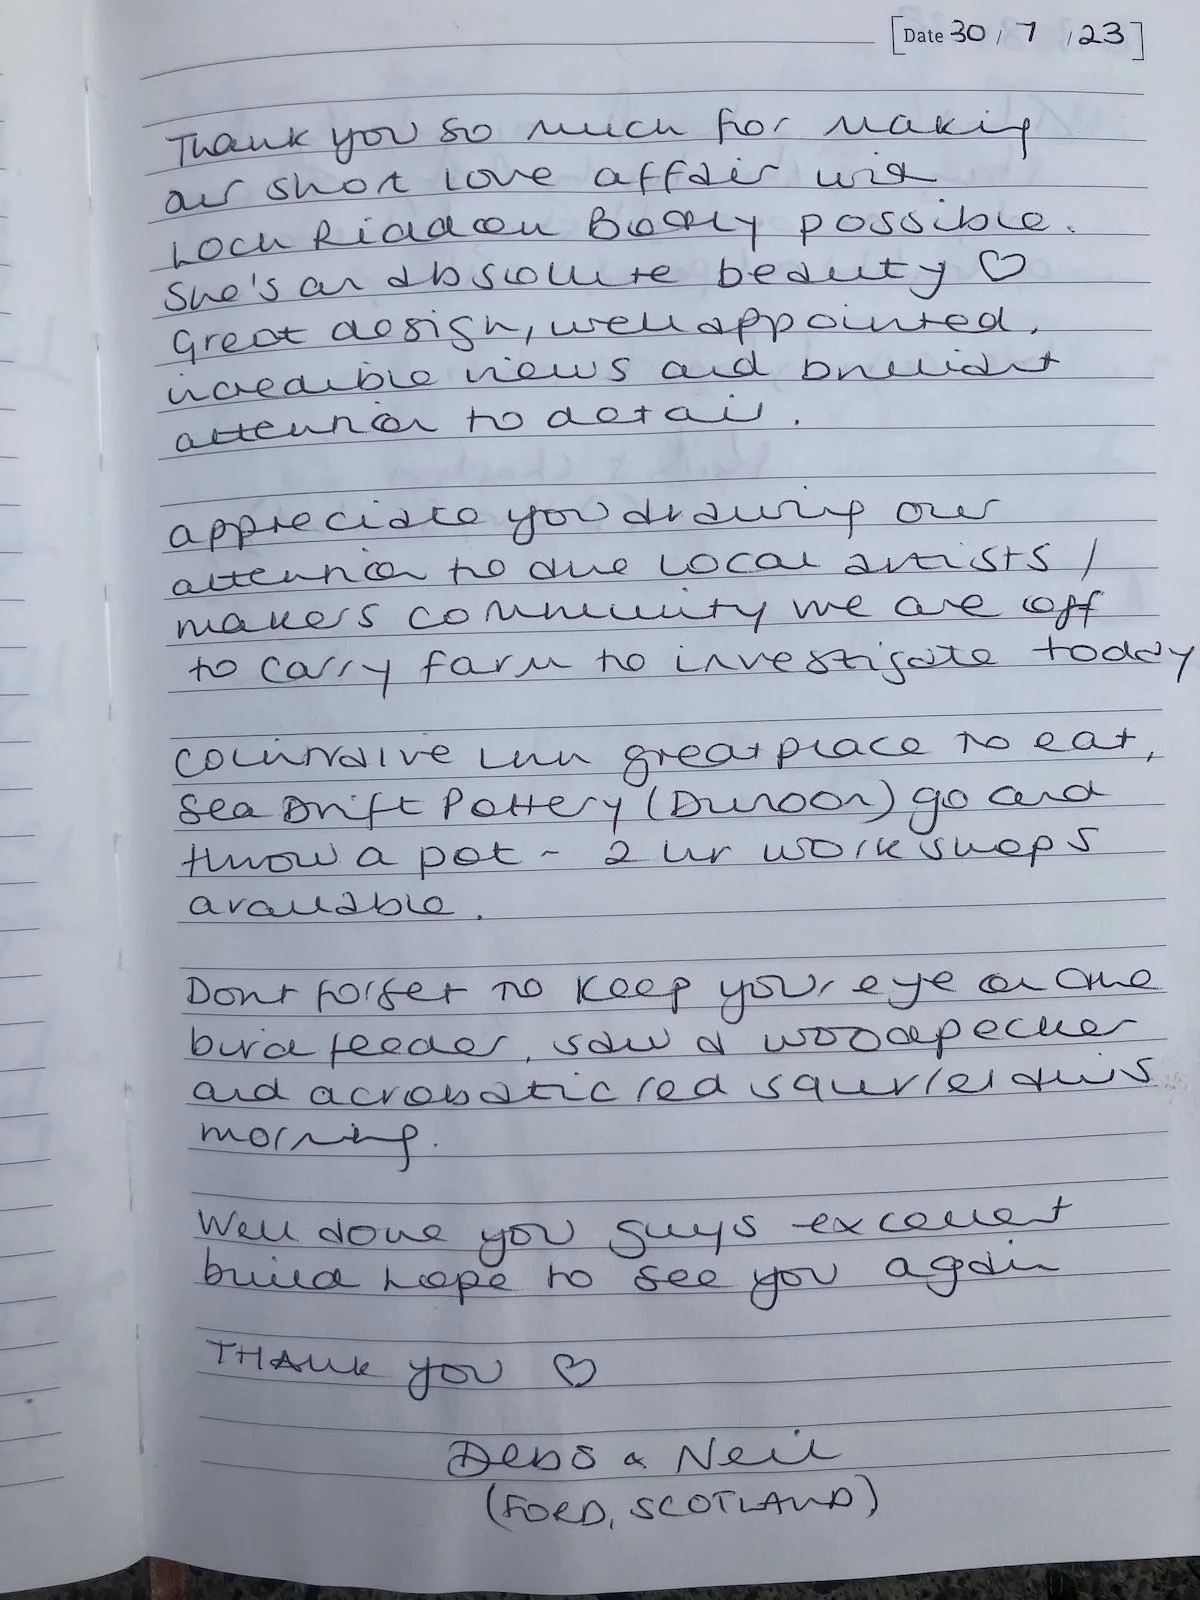 [Date 30 / 7 / 23]
Thank you so much for making
our short love affair with
Loch Riddon Bothy possible.
She's an absolute beauty ♡
Great design, well appointed,
incredible views and brilliant
attention to detail.
appreciate you drawing our
attention to the local artists /
makers community we are off
to carry farm to investigate today
Colintraive Inn great place to eat,
Sea Drift Pottery (Dunoon) go and
throw a pot - 2 hr workshops
available.
Dont forget to keep your eye on the
bird feeder, saw a woodpecker
and acrobatic red squirrel this
morning.
Well done you guys excellent
build hope to see you again
THANK YOU ♡
Debs & Neil
(FORD, SCOTLAND)